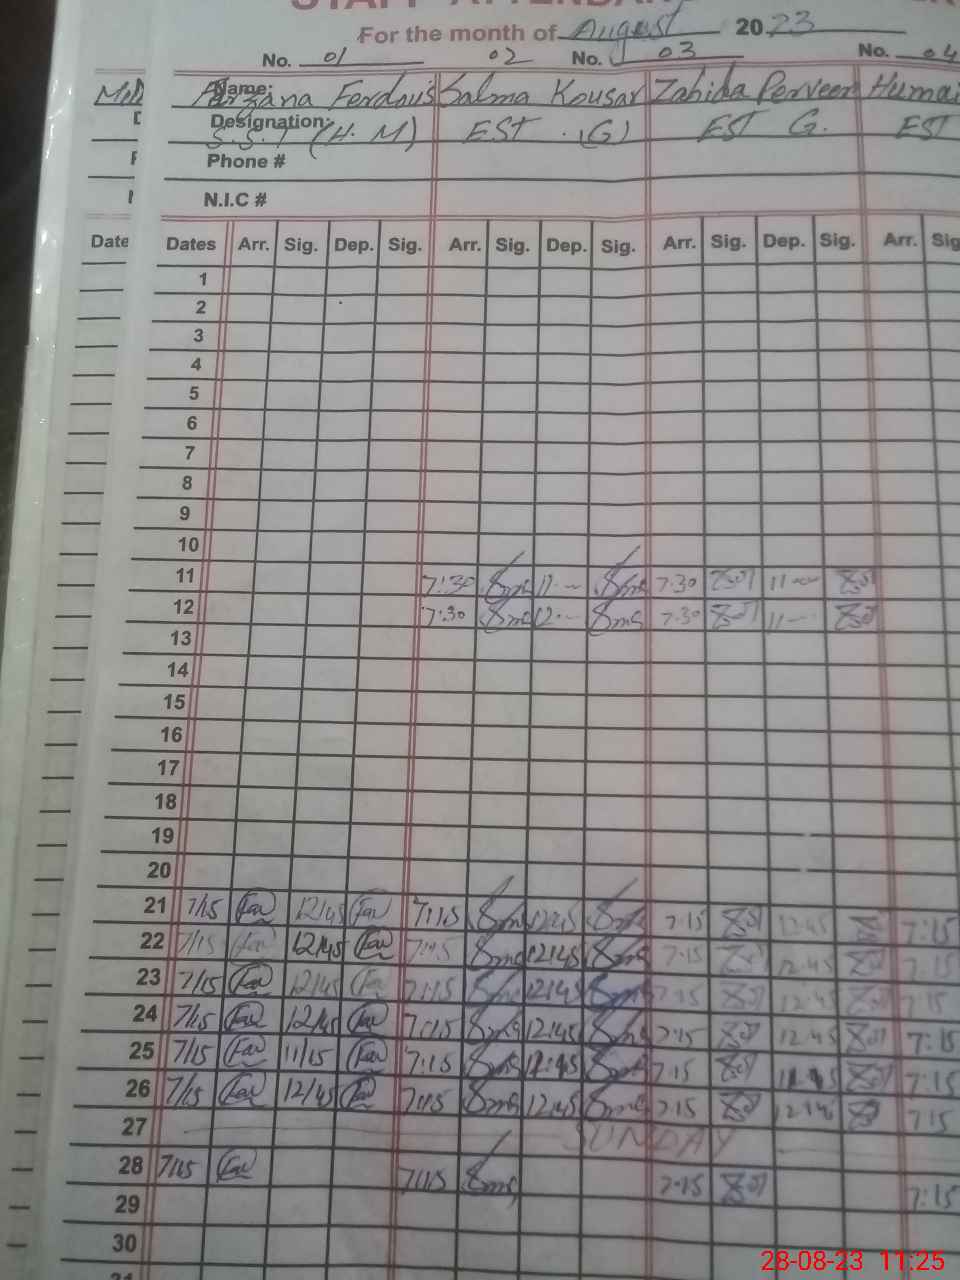 STAFF ATTENDAN
For the month of August 2023
No. 01 02 No. 03 No. 04
Name: Farzana Ferdous Salma Kousar Zahida Perveen Humai
Designation: S.S.T (H.M) EST (G) EST G. EST
Phone #
N.I.C #
Date Dates Arr. Sig. Dep. Sig. Arr. Sig. Dep. Sig. Arr. Sig. Dep. Sig. Arr. Sig
1
2
3
4
5
6
7
8
9
10
11 7:30 11-- 7:30 11--
12 7:30 12-- 7:30 11--
13
14
15
16
17
18
19
20
21 7/15 Far 12/45 Far 7:15 12:45 7:15 12:45 7:15
22 7/15 Far 12/45 Far 7:15 12:45 7:15 12:45 7:15
23 7/15 Far 12/45 Far 7:15 12:45 7:15 12:45 7:15
24 7/15 Far 12/45 Far 7:15 12:45 7:15 12:45 7:15
25 7/15 Far 11/15 Far 7:15 7:15 7:15
26 7/15 Far 12/45 Far 7:15 12:45 7:15 12:45 7:15
27 SUNDAY
28 7/15 Far 7:15 7:15 7:15
29
30
31
28-08-23 11:25